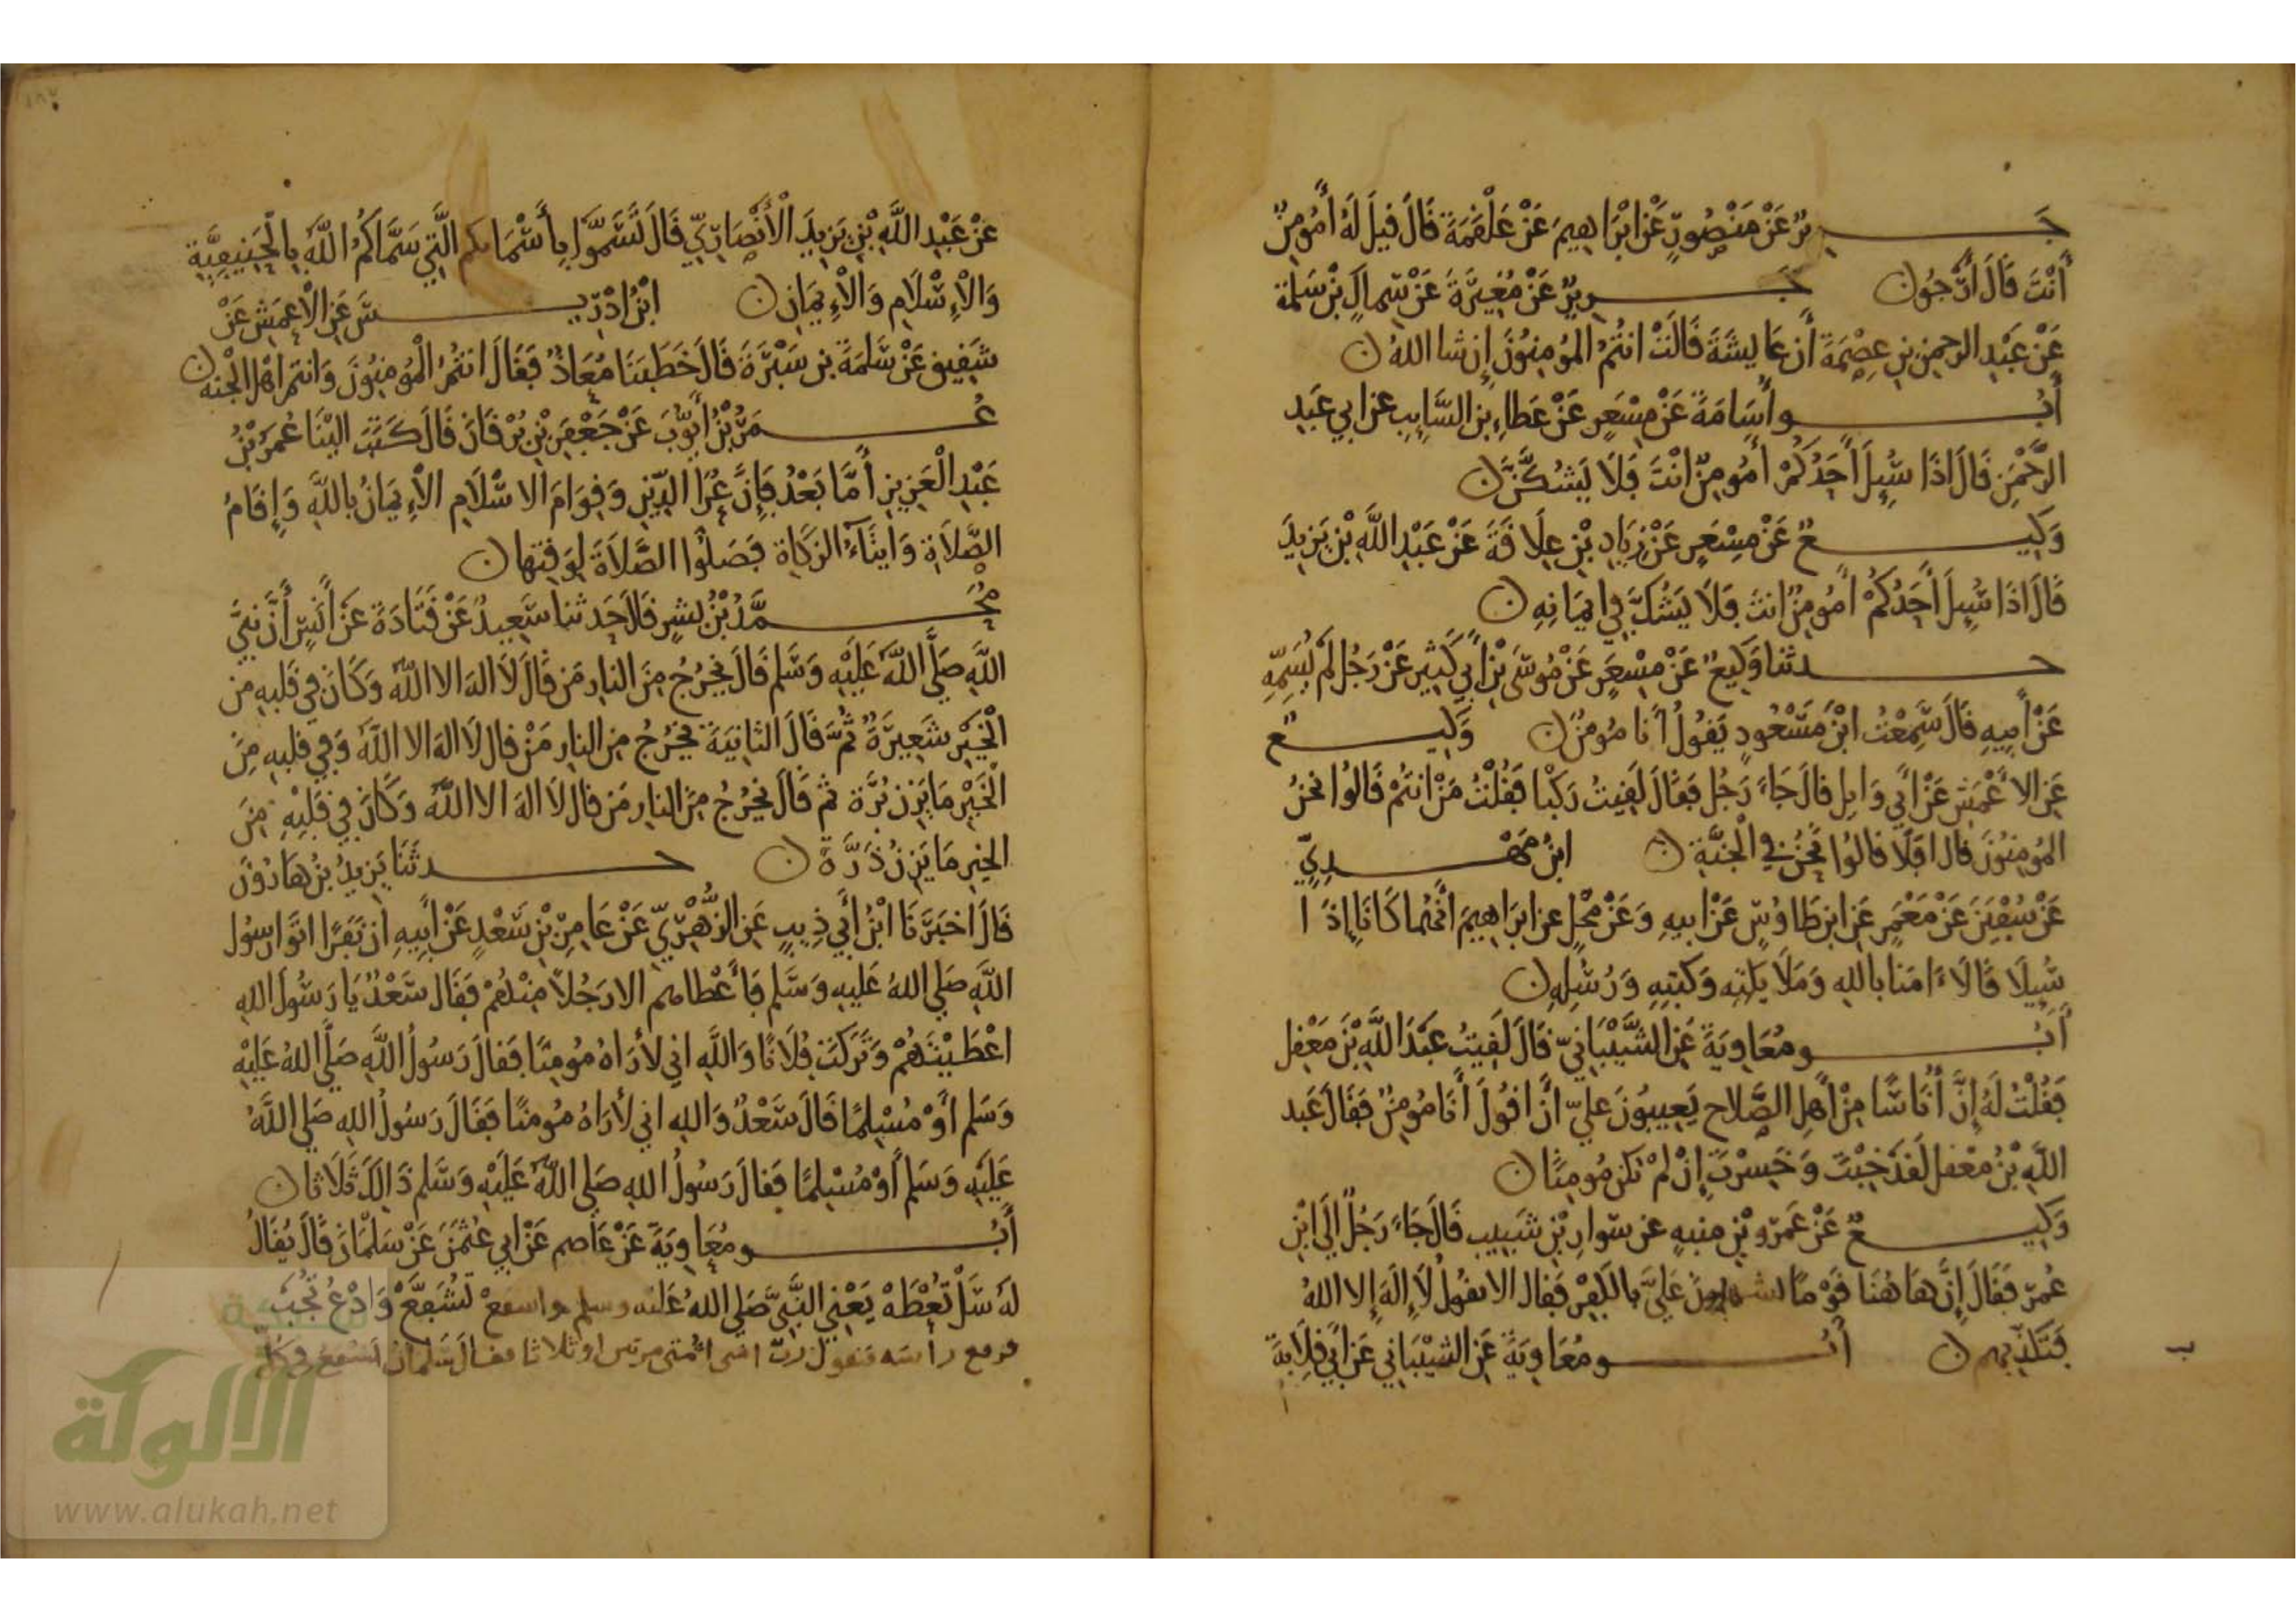 جرير عن منصور عن ابراهيم عن علقمة قال قيل له أمومن
أنت قال أرجوا جرير عن مغيرة عن سماك بن سلمة
عن عبد الرحمن بن عصمة أن عايشة قالت انتم المومنون إن شا الله
أبو أسامة عن مسعر عن عطاء بن السايب عن ابي عبد
الرحمن قال اذا سئل أحدكم أمومن انت فلا يشكن
وكيع عن مسعر عن زياد بن علاقة عن عبد الله بن يزيد
قال اذا سئل أحدكم أمومن انت فلا يشك في ايمانه
حدثنا وكيع عن مسعر عن موسى بن أبي كثير عن رجل لم يسمه
عن أبيه قال سمعت ابن مسعود يقول أنا مومن وكيع
عن الاعمش عن أبي وايل قال جاء رجل فقال لقيت ركبا فقلت من انتم قالوا نحن
المومنون قال افلا قالوا نحن في الجنة ابن مهدي
عن سفين عن معمر عن ابن طاوس عن ابيه وعن محل عن ابراهيم أنهما كانا إذا
سيلا قالا ءامنا بالله وملايكته وكتبه ورسله
أبو معاوية عن الشيباني قال لقيت عبد الله بن معفل
فقلت له إن أناسا من أهل الصلاح يعيبون علي أن اقول أنا مومن فقال عبد
الله بن معفل لقد خبت وخسرت إن لم تكن مومنا
وكيع عن عمرو بن منبه عن سوار بن شبيب قال جاء رجل إلى ابن
عمر فقال إن هاهنا قوما يشهدون علي بالكفر فقال الا تقول لا إله إلا الله
فتكذبهم أبو معاوية عن الشيباني عن أبي قلابة
ب
عن عبد الله بن يزيد الأنصاري قال تسموا بأسمايكم التي سماكم الله بالحنيفية
والإسلام والإيمان ابن ادريس عن الاعمش عن
شقيق عن سلمة بن سبرة قال خطبنا معاذ فقال انتم المومنون وانتم اهل الجنة
عمر بن أيوب عن جعفر بن برقان قال كتب الينا عمر بن
عبد العزيز أما بعد فإن عرا الدين وقوام الاسلام الإيمان بالله وإقام
الصلاة وايتاء الزكاة فصلوا الصلاة لوقتها
محمد بن بشر قال حدثنا سعيد عن قتادة عن أنس أن نبي
الله صلى الله عليه وسلم قال يخرج من النار من قال لا اله الا الله وكان في قلبه من
الخير شعيرة ثم قال الثانية يخرج من النار من قال لا اله الا الله وفي قلبه من
الخير ما يزن برة ثم قال يخرج من النار من قال لا اله الا الله وكان في قلبه من
الخير ما يزن ذرة حدثنا يزيد بن هارون
قال اخبرنا ابن أبي ذيب عن الزهري عن عامر بن سعد عن أبيه أن نفرا اتوا رسول
الله صلي الله عليه وسلم فأعطاهم الا رجلا منهم فقال سعد يا رسول الله
اعطيتهم وتركت فلانا والله اني لأراه مومنا فقال رسول الله صلى الله عليه
وسلم أو مسلما قال سعد والله اني لأراه مومنا فقال رسول الله صلي الله
عليه وسلم أو مسلما فقال رسول الله صلى الله عليه وسلم ذالك ثلاثا
أبو معاوية عن عاصم عن ابي عثمن عن سلمان قال يقال
له سل تعطه يعني النبي صلي الله عليه وسلم واشفع تشفع وادع تجب
فيرفع رأسه فيقول رب امتي امتي مرتين او ثلاثا فقال سلمان يشفع في كل
الألوكة
www.alukah.net